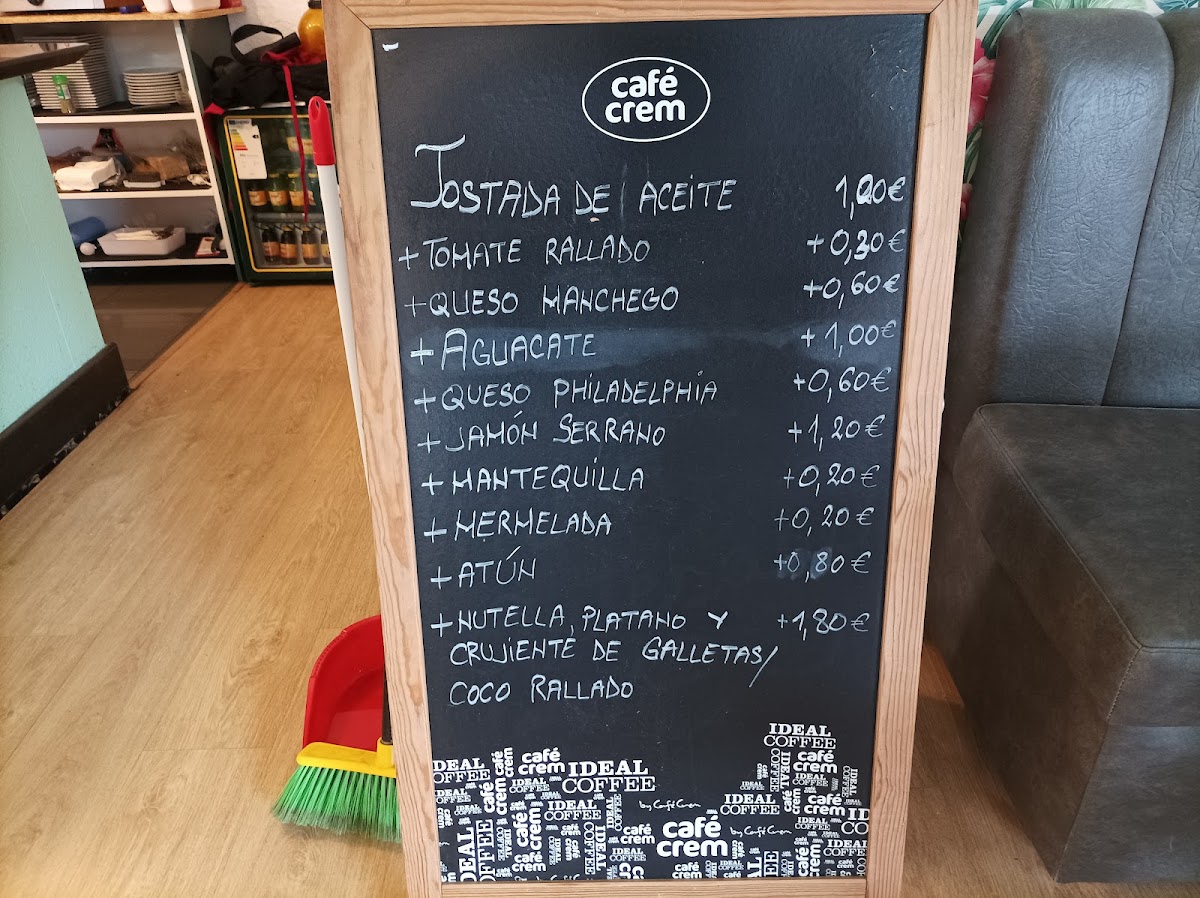 café
crem
TOSTADA DE ACEITE 1,20€
+TOMATE RALLADO +0,30€
+QUESO MANCHEGO +0,60€
+AGUACATE +1,00€
+QUESO PHILADELPHIA +0,60€
+JAMÓN SERRANO +1,20€
+MANTEQUILLA +0,20€
+MERMELADA +0,20€
+ATÚN +0,80€
+NUTELLA, PLATANO Y +1,80€
CRUJIENTE DE GALLETAS/
COCO RALLADO
IDEAL
COFFEE
café
crem
IDEAL
COFFEE
café
crem
IDEAL
COFFEE
by Café Crem
IDEAL
COFFEE
café
crem
café
crem
by Café Crem